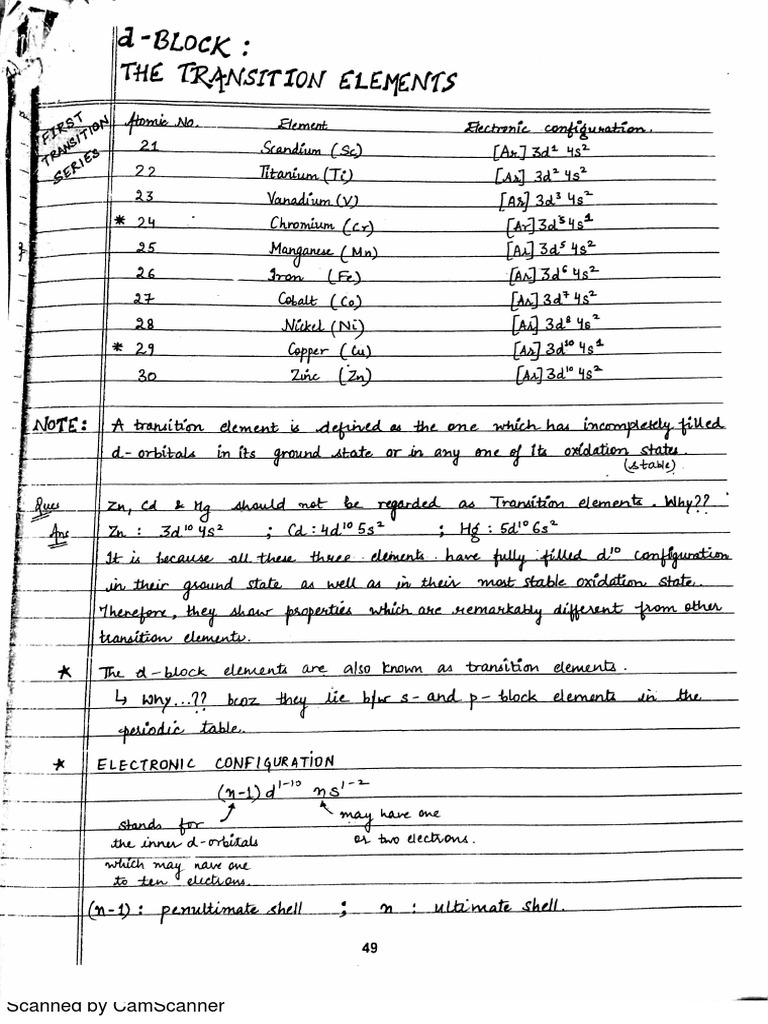 d-BLOCK :
THE TRANSITION ELEMENTS
FIRST TRANSITION SERIES
Atomic No. Element Electronic configuration.
21 Scandium (Sc) [Ar] 3d¹ 4s²
22 Titanium (Ti) [Ar] 3d² 4s²
23 Vanadium (V) [Ar] 3d³ 4s²
* 24 Chromium (Cr) [Ar] 3d⁵ 4s¹
25 Manganese (Mn) [Ar] 3d⁵ 4s²
26 Iron (Fe) [Ar] 3d⁶ 4s²
27 Cobalt (Co) [Ar] 3d⁷ 4s²
28 Nickel (Ni) [Ar] 3d⁸ 4s²
* 29 Copper (Cu) [Ar] 3d¹⁰ 4s¹
30 Zinc (Zn) [Ar] 3d¹⁰ 4s²
NOTE: A transition element is defined as the one which has incompletely filled
d-orbitals in its ground state or in any one of its oxidation states.
(stable)
Ques Zn, Cd & Hg should not be regarded as Transition elements. Why??
Ans Zn : 3d¹⁰ 4s² ; Cd : 4d¹⁰ 5s² ; Hg : 5d¹⁰ 6s²
It is because all these three elements have fully filled d¹⁰ configuration
in their ground state as well as in their most stable oxidation state.
Therefore, they show properties which are remarkably different from other
transition elements.
★ The d-block elements are also known as transition elements.
↳ Why...?? bcoz they lie b/w s- and p- block elements in the
periodic table.
★ ELECTRONIC CONFIGURATION
(n-1) d¹⁻¹⁰ ns¹⁻²
stands for
the inner d-orbitals
which may have one
to ten electrons.
may have one
or two electrons.
(n-1) : penultimate shell ; n : ultimate shell.
49
Scanned by CamScanner